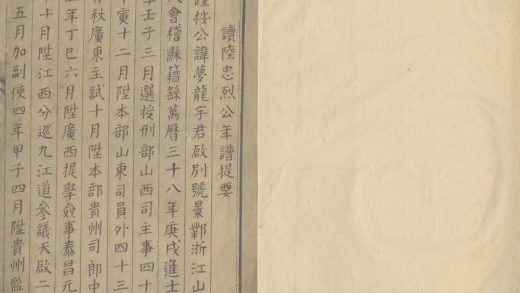 讀陸忠烈公年譜提要
謹按公諱夢龍字君啟別號景鄴浙江山
人會稽縣籍繇萬曆三十八年庚戌進士
壬子三月選授刑部山西司主事四十
寅十二月陞本部山東司員外四十三
秋廣東主試十月陞本部貴州司郎中
年丁巳六月陞廣西提學僉事泰昌元
十月陞江西分巡九江道參議天啟二
五月加副使四年甲子四月陞貴州監